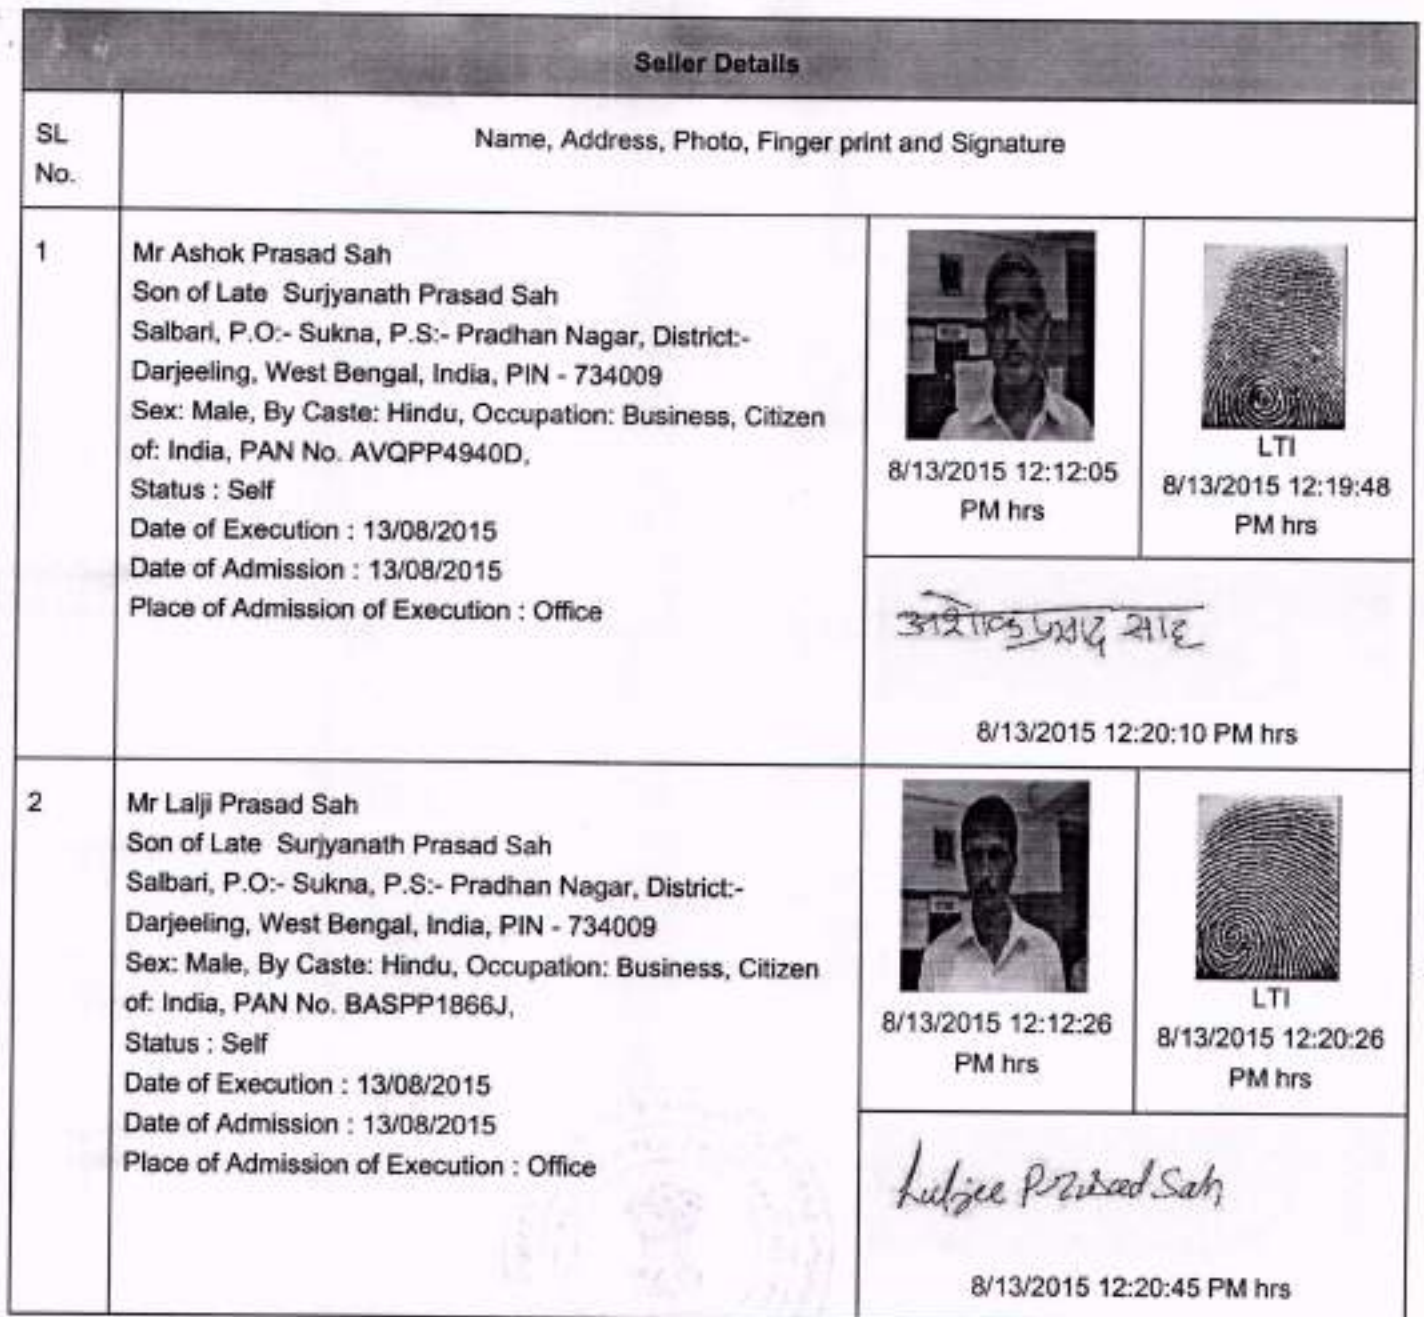 Seller Details
SL No.
Name, Address, Photo, Finger print and Signature
1
Mr Ashok Prasad Sah
Son of Late Surjyanath Prasad Sah
Salbari, P.O:- Sukna, P.S:- Pradhan Nagar, District:-
Darjeeling, West Bengal, India, PIN - 734009
Sex: Male, By Caste: Hindu, Occupation: Business, Citizen
of: India, PAN No. AVQPP4940D,
Status : Self
Date of Execution : 13/08/2015
Date of Admission : 13/08/2015
Place of Admission of Execution : Office
8/13/2015 12:12:05
PM hrs
LTI
8/13/2015 12:19:48
PM hrs
अशोक प्रसाद साह
8/13/2015 12:20:10 PM hrs
2
Mr Lalji Prasad Sah
Son of Late Surjyanath Prasad Sah
Salbari, P.O:- Sukna, P.S:- Pradhan Nagar, District:-
Darjeeling, West Bengal, India, PIN - 734009
Sex: Male, By Caste: Hindu, Occupation: Business, Citizen
of: India, PAN No. BASPP1866J,
Status : Self
Date of Execution : 13/08/2015
Date of Admission : 13/08/2015
Place of Admission of Execution : Office
8/13/2015 12:12:26
PM hrs
LTI
8/13/2015 12:20:26
PM hrs
Laljee Prasad Sah
8/13/2015 12:20:45 PM hrs